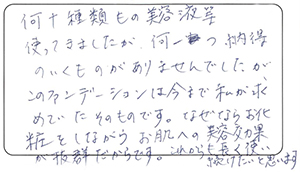 何十種類もの美容液等
使ってきましたが、何一つ納得
のいくものがありませんでしたが
このファンデーションは今まで私が求
めていたそのものです。なぜならお化
粧をしながらお肌への美容効果
が抜群だからです。これからも長く使い
続けたいと思います